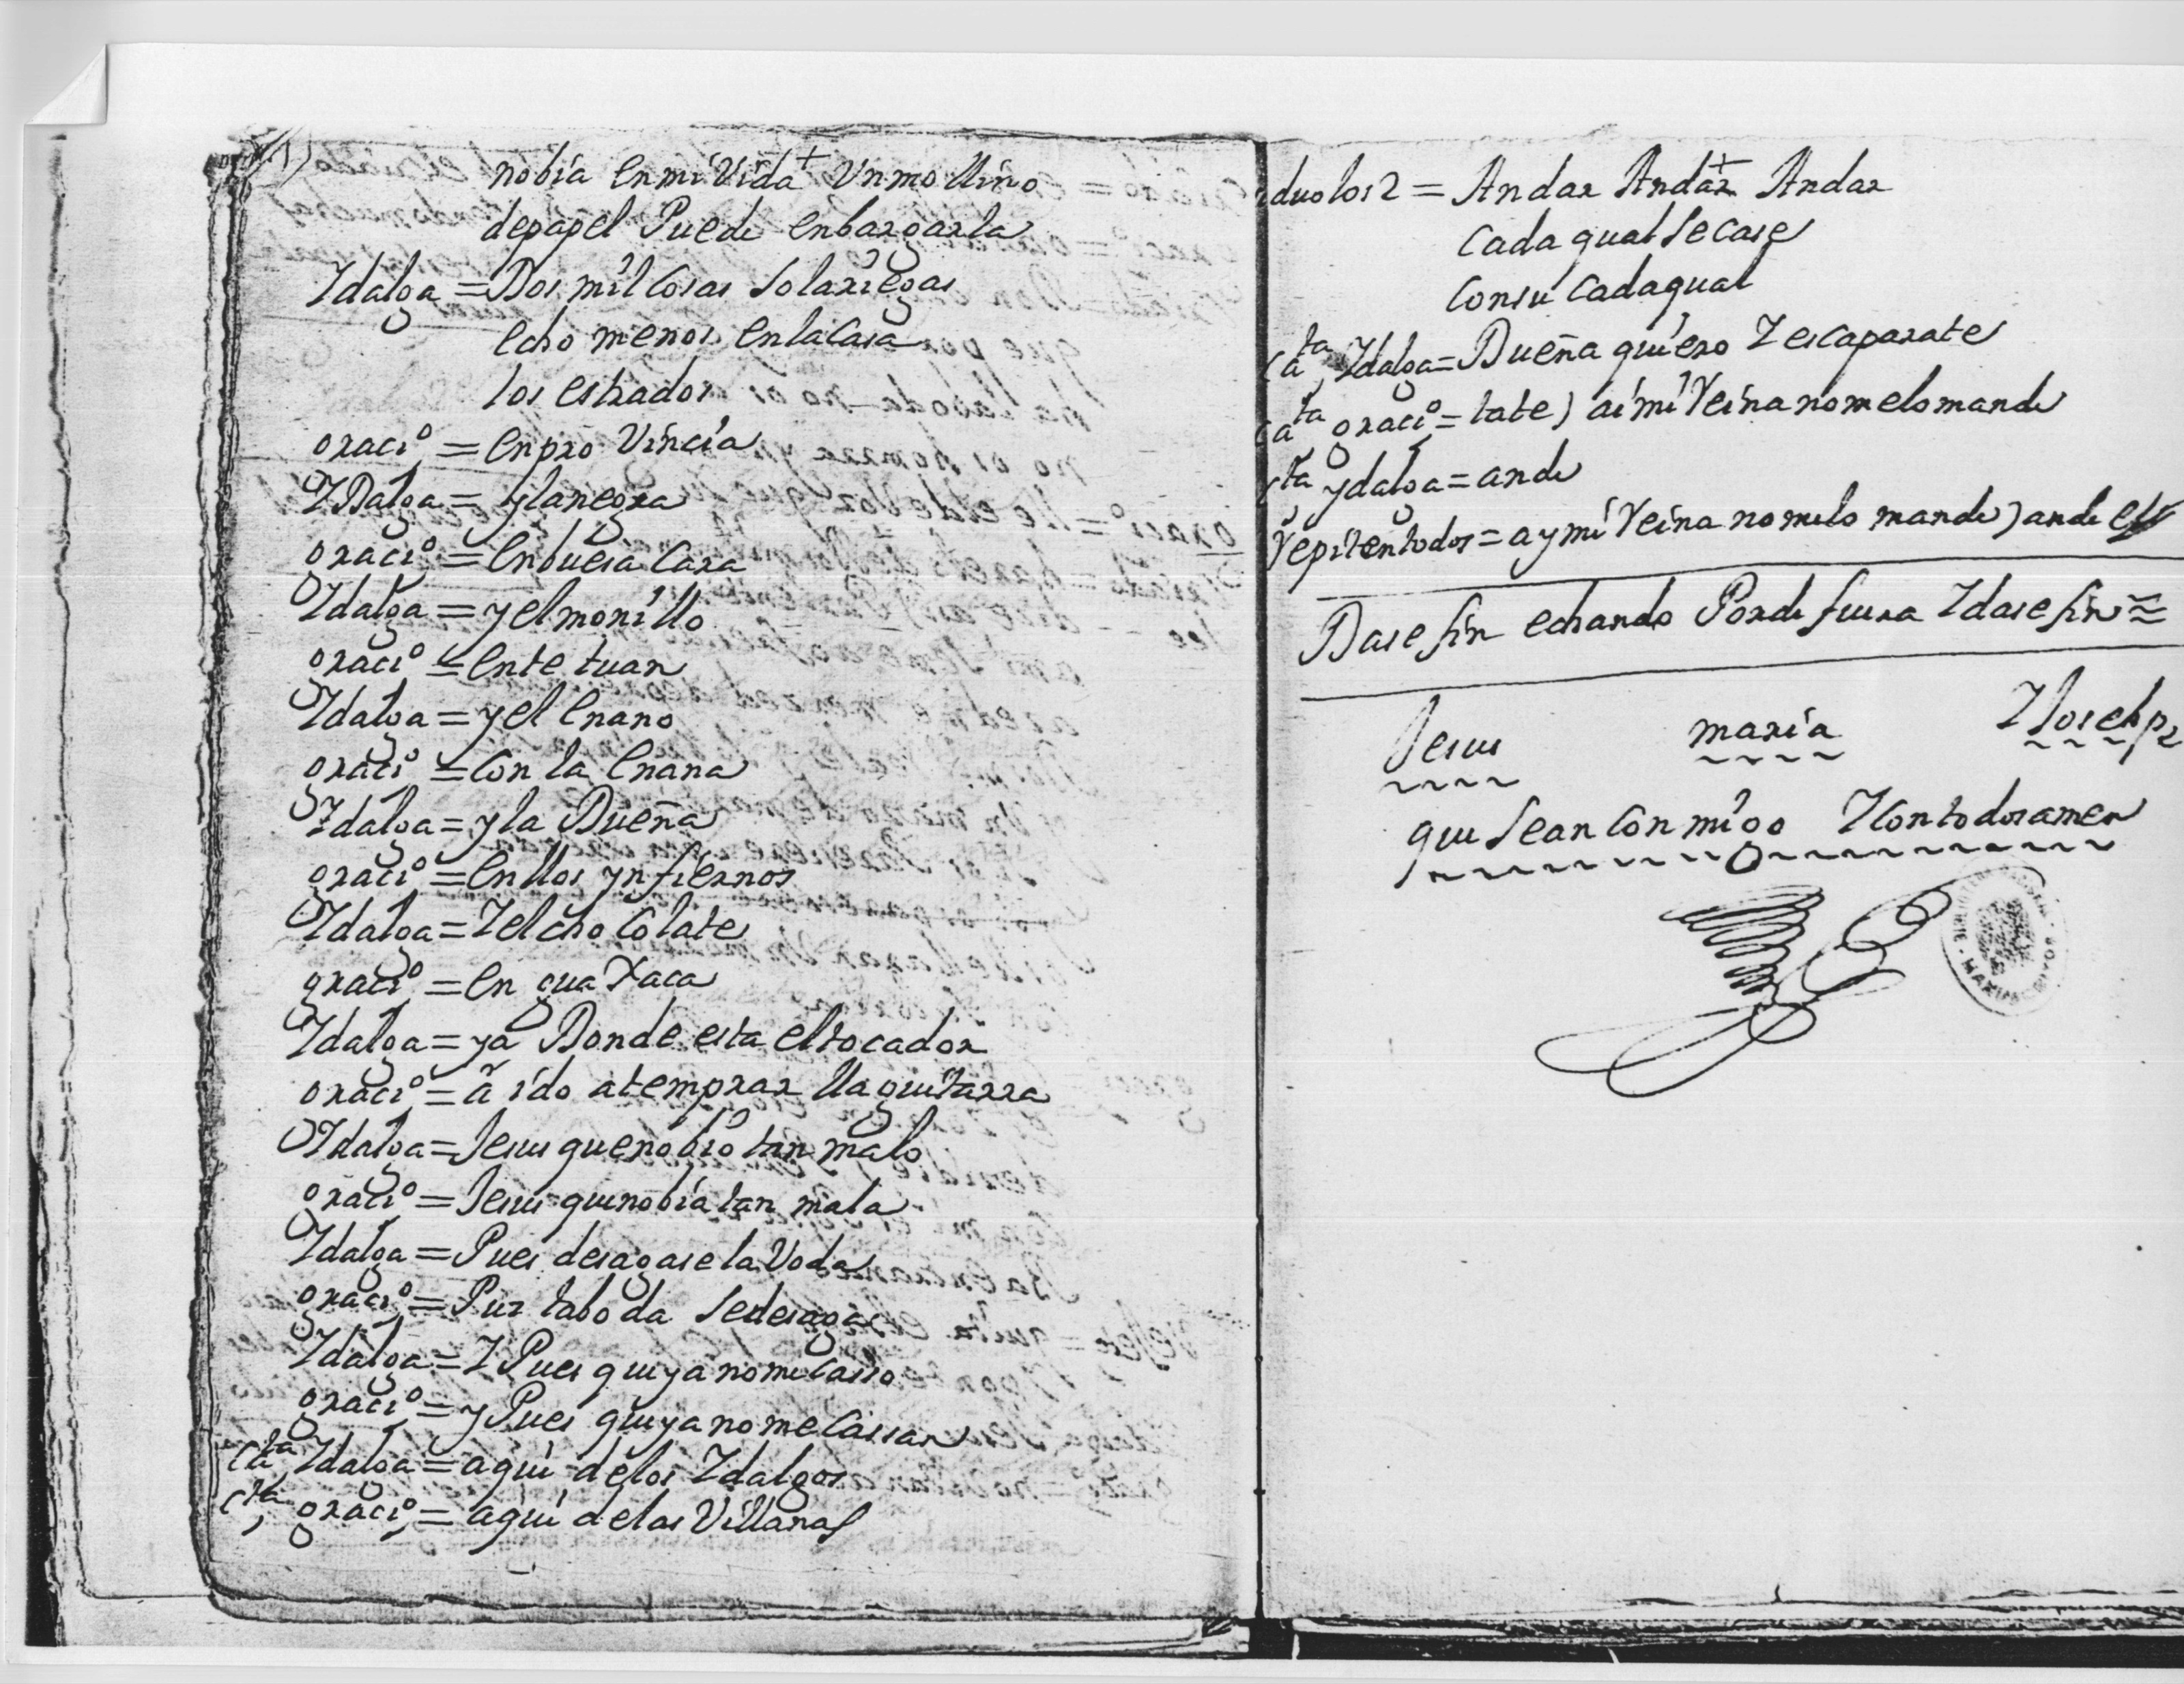 nobia en mi Vida + Vn mollino
de papel Puede enbargarla
Idalga = Dos mil cosas solariegas
echo menos en la casa
los estrados
graci.º = en pro Vincia
IDalga = y la negra
graci.º = en buesa cara
Idalga = y el monillo
graci.º = en te tuan
Idalga = y el enano
graci.º = con la enana
Idalga = y la Dueña
graci.º = en llos ynfiernos
Idalga = I el cho colate
graci.º = en guaxaca
Idalga = ya Donde esta el tocador
graci.º = ã ido a temprar lla guitarra
Idalga = Jesus que nobio tan malo
graci.º = Jesus que nobia tan mala
Idalga = Pues desagase la Voda
graci.º = Puz la boda se desaga
Idalga = I Pues que ya no me casso
graci.º = y Pues que ya no me cassan
cata Idalga = aqui de los Idalgos
cta graci.º = aqui de las Villanas
duo los 2 = Andar Andar + Andar
cada qual se case
con su cada qual
cata Idalga = Dueña quiero I escaparate
cata graci.º = tate) ai mi Reina no me lo mande
cta ydalga = ande
Repiten todos = ay mi Reina no me lo mande) ande etc
Dase fin echando Por de fuera I dase fin =
Jesus maria I Joseph
que sean con migo I con todos amen